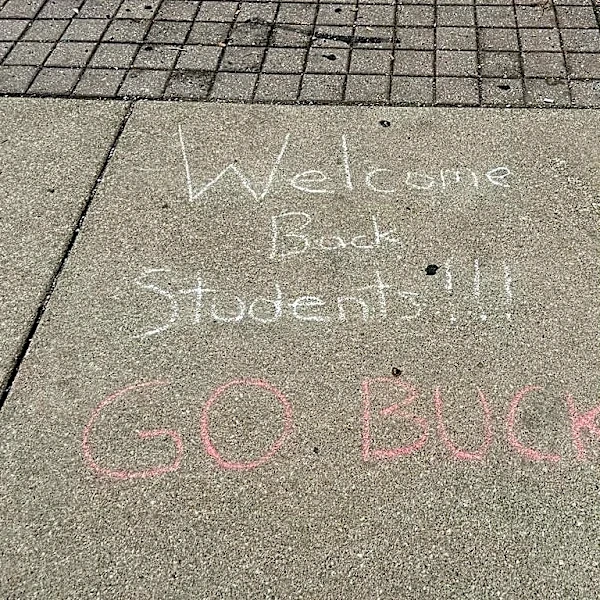 Welcome
Back
Students!!!!
GO BUCK